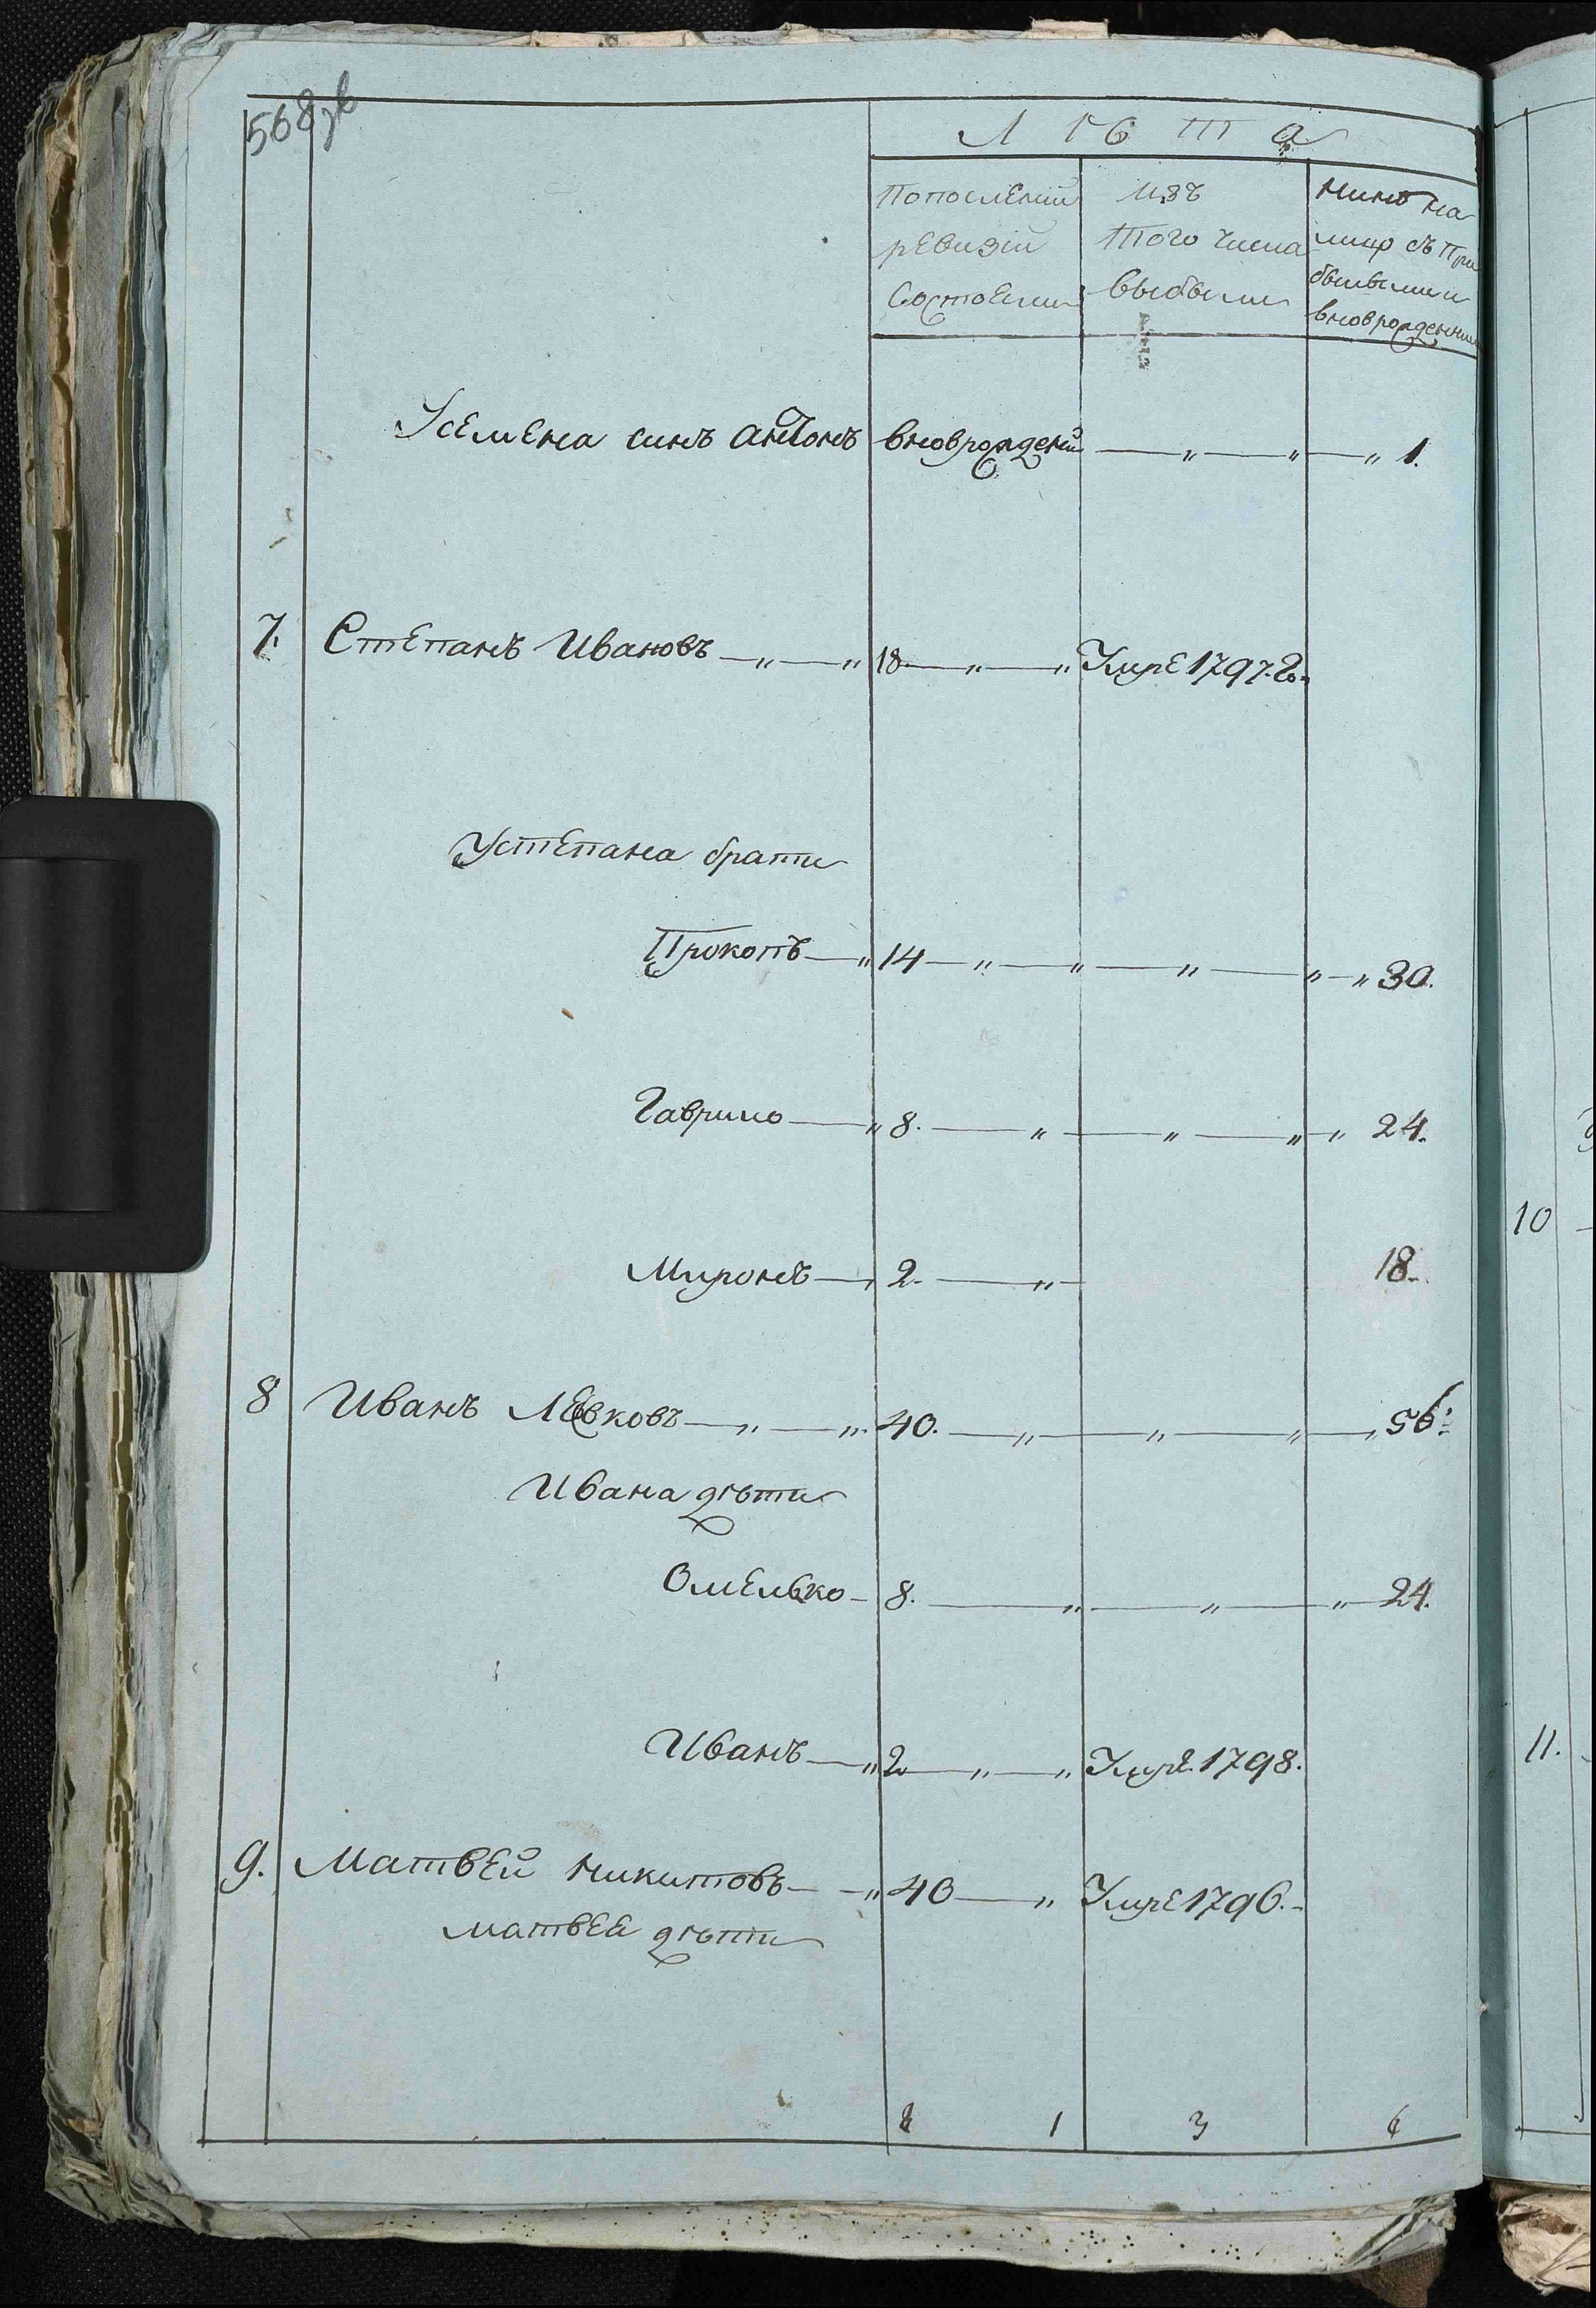 568зв
Лѣта
Попослеѣній ревизіи Состоѣли
изъ Того числа выбыли
нинѣ на лицо съ При бывшими и вноврожденними
Усемена синъ антонъ вноврожденій 1.
7. Степанъ Ивановъ 18 Умре 1797. го.
Устепана брати
Прокопъ 14 30.
Гаврило 8. 24.
Миронъ 2. 18.
8 Иванъ Левковъ 40. 56.
Ивана дѣти
Омелько 8. 24.
Иванъ 2 Умре 1798.
9. Матвей никитовъ 40 Умре 1796.
матвея дѣти
8 1 3 6
10
11.